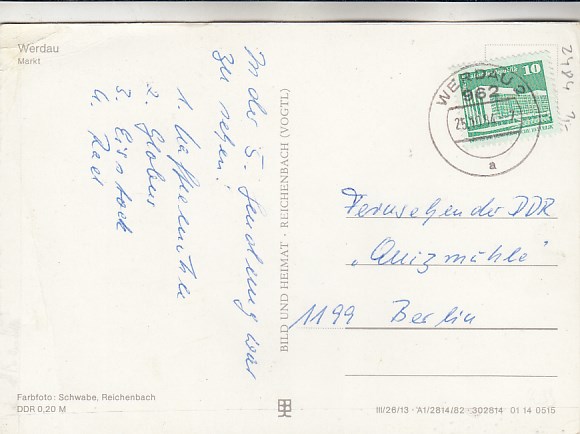 Werdau
Markt
In der 5. Sendung war
zu sehen:
1. Kaffeemühle
2. Globus
3. Eisstock
4. Rad
Farbfoto: Schwabe, Reichenbach
DDR 0,20 M
BILD UND HEIMAT · REICHENBACH (VOGTL)
10
WERDAU
962
a
2484
Fernsehen der DDR
„Quizmühle"
1199 Berlin
III/26/13 · A1/2814/82 · 302814 01 14 0515